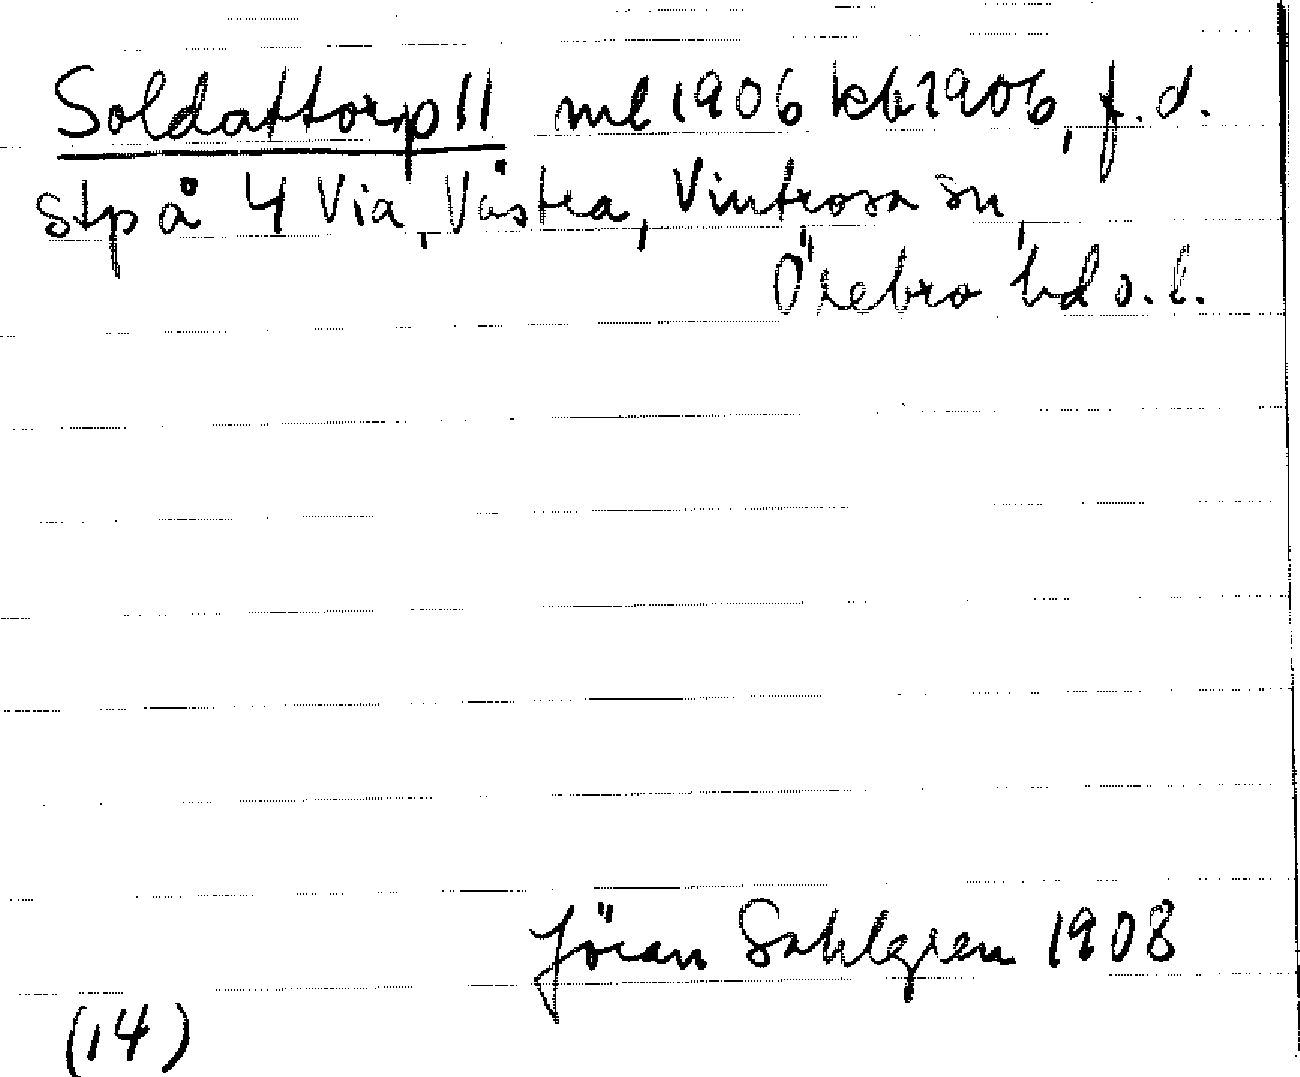 Soldattorp 11 ml 1906 kb 1906, f.d.
stp å 4 Via, Västra, Vintrosa sn,
Örebro hd o. l.
Jöran Sahlgren 1908
(14)